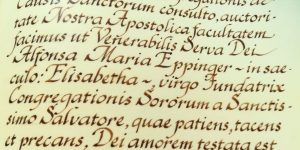 Causis Sanctorum consulto, auctori-
tate Nostra Apostolica facultatem
facimus ut Venerabilis Serva Dei
Alfonsa Maria Eppinger - in sae-
culo: Elisabetha -, virgo Fundatrix
Congregationis Sororum a Sanctis-
simo Salvatore, quae patiens, tacens
et precans, Dei amorem testata est